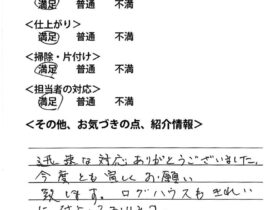 満足 普通 不満
<仕上がり>
満足 普通 不満
<掃除・片付け>
満足 普通 不満
<担当者の対応>
満足 普通 不満
<その他、お気づきの点、紹介情報>
迅速な対応、ありがとうございました。
今度とも宜しくお願い
致します。ログハウスもきれい
に